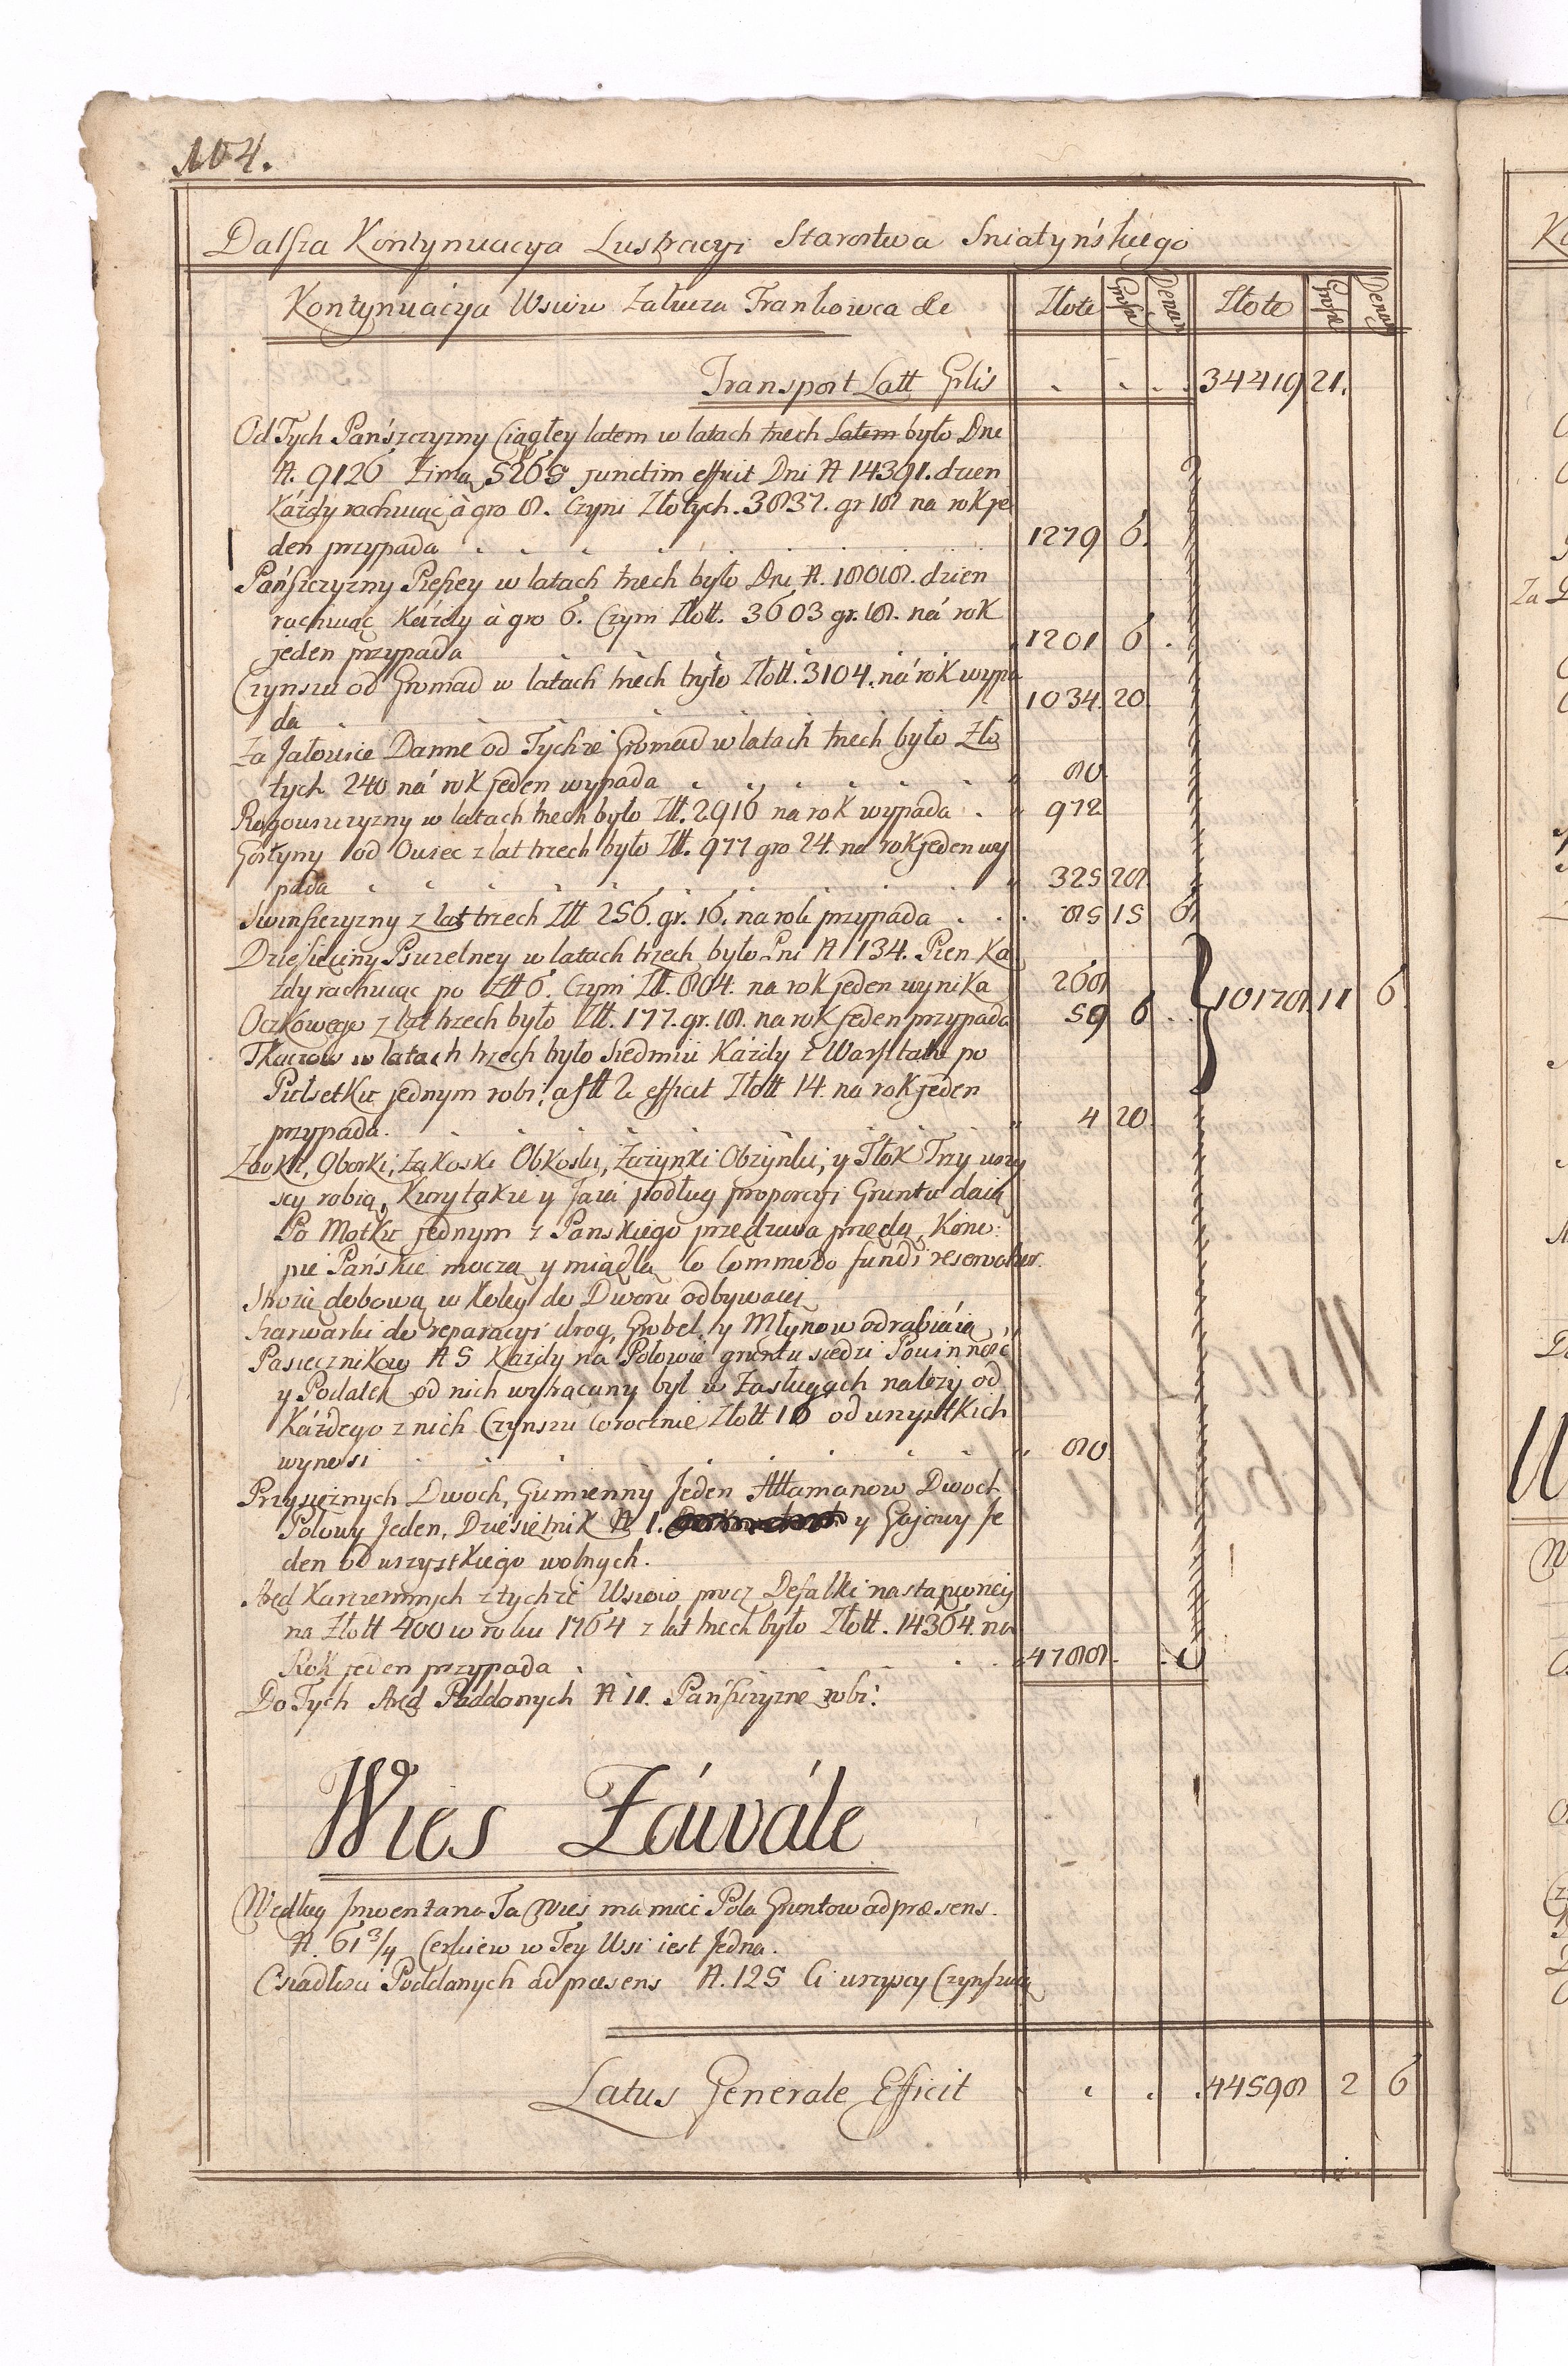 No 4.
Dalsza Kontynuacya Lustracyi Starostwa Sniatyńskiego
Kontynuácya Wsiów Załucza Trankowca &c Złote Grosze Denar Złote Grosze Denar
Transport Latt Grlis 34419 21.
Od Tych Pańszczyzny Ciągłey latem w latach trzech Latem było Dni
N. 9126 Zimą 5265 junctim efficit Dni N 14391. dzien
Káżdy rachuiąc à gro 8. Czyni Złotych. 3837. gr 18 na rok je
den przypada 1279 6.
Pańszczyzny Pieszey w latach trzech było Dni N. 18018. dzien
rachuiąc Káżdy à gro 6. Czyni Złott. 3603 gr. 18. ná rok
jeden przypada 1201 6
Czynszu od Gromad w latach trzech było Złott. 3104. ná rok wypa
da 1034 20
Za Jałowice Danne od Tychże Gromad w latach trzech było Zło
tych 240 ná rok jeden wypada 80.
Rogowszczyzny w latach trzech było Złt. 2916 na rok wypada 972
Gorsztyny od Owiec z lat trzech było Złt. 977 gro 24. na rok jeden wy
pada 325 28.
Swinszczyzny z lat trzech Złt 256. gr. 16. na rok przypada 85 15 6
Dziesięciny Pszczelney w latach trzech było Pni N 134. Pien Ka
żdy rachuiąc po Złt 6. Czyni Złt. 804. na rok jeden wynika 268 10178. 11 6
Oczkowego z lat trzech było Złt. 177. gr. 18. na rok jeden przypada 59 6
Tkaczow w latach trzech było siedmiu Káżdy z Warsztatu po
Pułsetku jednym robi, a fl 2 efficit Złott 14. na rok jeden
przypada. 4 20.
Zaorki, Oborki, Zakoski Obkoski, Zażynki Obżynki, y Tłok Trzy wszy
scy robią, Kury takie y Jaia podług proporcyi Gruntu daią
Po Motku jednym z Panskiego przędziwa przędą, Kono:
pie Pańskie moczą y miądlą Co Commodo fundi reservatur.
Stróżę dobową w Koley do Dworu odbywaią
Szarwarki do reparacyi drog, Grobel, y Młynow odrabiáią
Pasiecznikow N 5 Każdy ná Połowie gruntu siedzi Powinność
y Podatek od nich wytrącany był w Zasługach nalezy od
Káżdego z nich Czynszu Corocznie Złott 16 od wszystkich
wynosi 80
Przysiężnych Dwoch, Gumienny Jeden Attamanow Dwoch
Polowy Jeden, Dziesiętnik N 1. y Gajowy Je
den od wszystkiego wolnych.
Aręd Karczemnych z tychże Wsiow procz Defalki nastąpioney
na Złott 400 w roku 1764 z lat trzech było Złott. 14364. na
Rok jeden przypada 4788
Do Tych Aręd Poddanych N 11. Pańszczyznę robi.
Wies Záwále
Według Jnwentarza Ta Wies ma mieć Pola Gruntow ad præsens.
N. 61 3/4 Cerkiew w Tey Wsi iest Jedna.
Osiadłości Poddanych ad præsens N. 125 Ci wszyscy Czynszuią
Latus Generale Efficit 44598 2 6